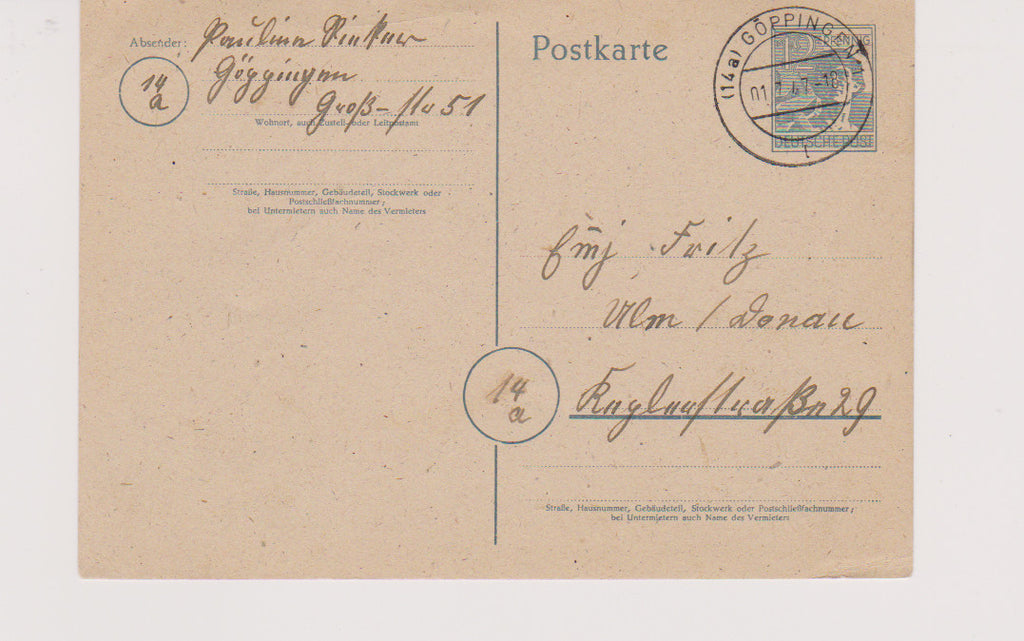 Absender: Pauline
14
a
Göppingen
Groß-str 51
Wohnort, auch Zustell- oder Leitpostamt
Straße, Hausnummer, Gebäudeteil, Stockwerk oder
Postschließfachnummer;
bei Untermietern auch Name des Vermieters
Postkarte
(14a) GÖPPINGEN
12 PFENNIG
DEUTSCHE POST
Fritz
Ulm / Donau
14
a
Keplerstraße 29
Straße, Hausnummer, Gebäudeteil, Stockwerk oder Postschließfachnummer;
bei Untermietern auch Name des Vermieters